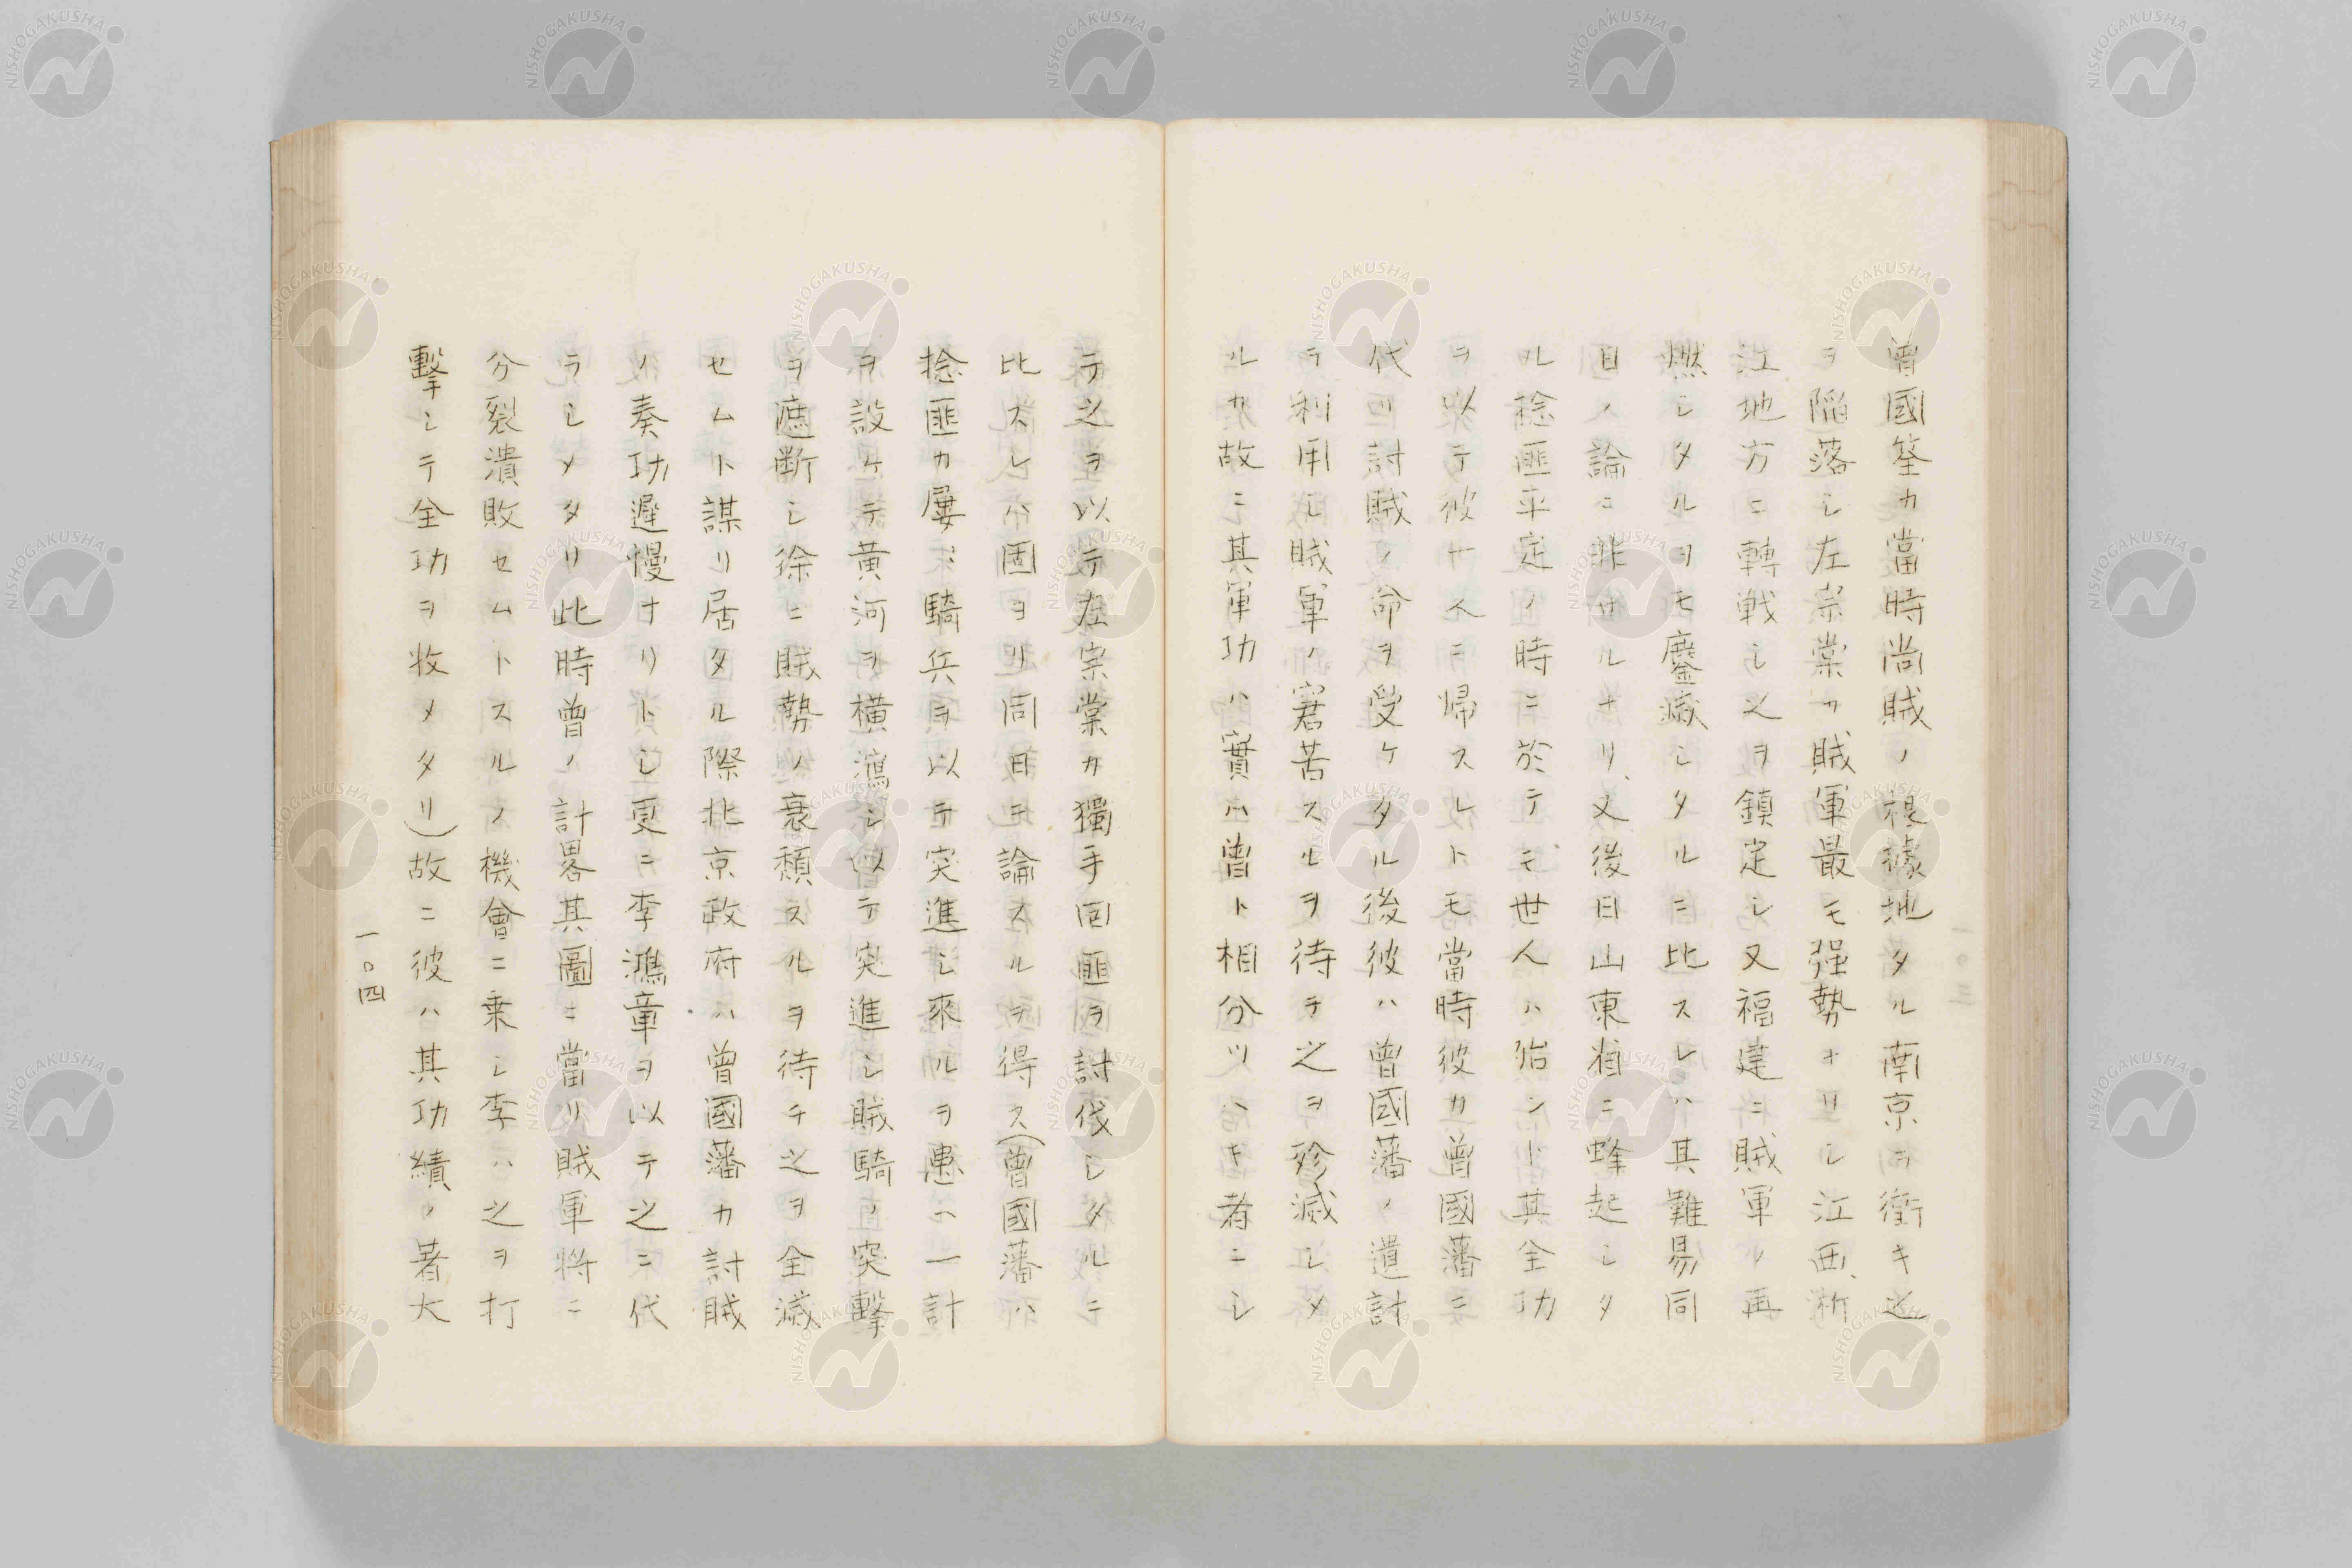 曾國筌カ當時尚賊ノ根據地タル南京ヲ衝キ之
ヲ陥落シ左宗棠カ賊軍最モ强勢ナリシ江西、浙
江地方ニ轉戦シ之ヲ鎮定シ又福建ニ賊軍ノ再
燃シタルヲモ鏖滅シタルニ比スレハ其難易同
日ノ論ニ非サルナリ、又後日山東省ニ蜂起シタ
ル捻匪平定ノ時ニ於テモ世人ハ殆ント其全功
ヲ以テ彼一人ニ帰スレトモ當時彼カ曾國藩ニ
代リ討賊ノ命ヲ受ケタル後彼ハ曾國藩ノ遺討
ヲ利用シ賊軍ノ窘苦スルヲ待チ之ヲ殄滅シタ
ルカ故ニ其軍功ハ實ハ曾ト相分ツヘキ者ニシ
テ之ヲ以テ左宗棠カ獨手回匪ヲ討伐シタルニ
比スレハ固ヨリ同日ヲ論スルヲ得ス(曾國藩ハ
捻匪カ屢〻騎兵ヲ以テ突進シ來ルヲ患ヘ一計
ヲ設ケテ黄河ヲ横瀉シ以テ突進シ賊騎ノ突擊
ヲ遮断シ徐ニ賊勢ノ衰頽スルヲ待チ之ヲ全滅
セムト謀リ居タル際北京政府ハ曾國藩カ討賊
ノ奏功遲慢ナリトシ更ニ李鴻章ヲ以テ之ニ代
ラシメタリ此時曾ノ計畧其圖ニ當リ賊軍将ニ
分裂潰敗セムトスルノ機會ニ乗シ李ハ之ヲ打
擊シテ全功ヲ收メタリ)故ニ彼ハ其功績ノ著大
一〇四
NISHOGAKUSHA